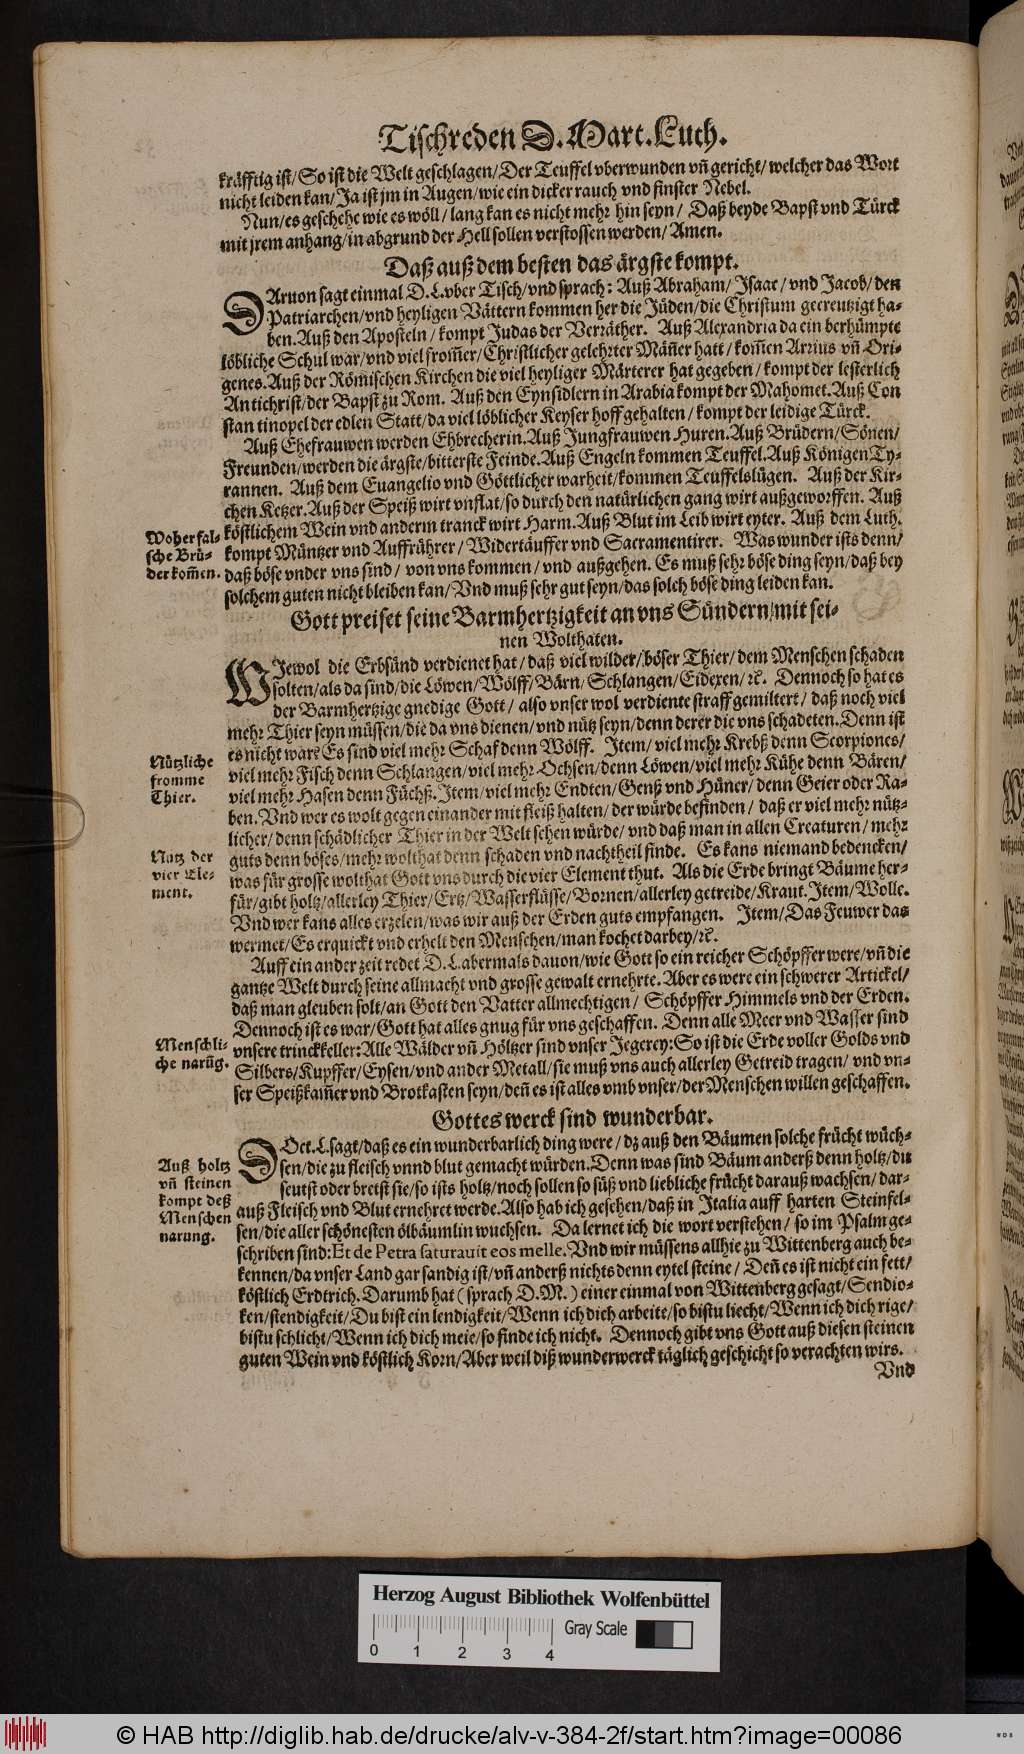 Tischreden D. Mart. Luth.
kräfftig ist/ So ist die Welt geschlagen/ Der Teuffel vberwunden vn̄ gericht/ welcher das Wort
nicht leiden kan/ Ja ist jm in Augen/ wie ein dicker rauch vnd finster Nebel.
Nun/ es geschehe wie es wöll/ lang kan es nicht mehr hin seyn/ Daß beyde Bapst vnd Türck
mit jrem anhang/ in abgrund der Hell sollen verstossen werden/ Amen.
Daß auß dem besten das ärgste kompt.
DAruon sagt einmal D. L. vber Tisch/ vnd sprach: Auß Abraham/ Isaac/ vnd Jacob/ den
Patriarchen/ vnd heyligen Vättern kommen her die Jüden/ die Christum gecreutzigt ha-
ben. Auß den Aposteln/ kompt Judas der Verräther. Auß Alexandria da ein berhümpte
löbliche Schul war/ vnd viel from̄er/ Christlicher gelehrter Män̄er hatt/ kom̄en Arrius vn̄ Ori-
genes. Auß der Römischen Kirchen die viel heyliger Märterer hat gegeben/ kompt der lesterlich
Antichrist/ der Bapst zu Rom. Auß den Eynsidlern in Arabia kompt der Mahomet. Auß Con
stantinopel der edlen Statt/ da viel löblicher Keyser hoff gehalten/ kompt der leidige Türck.
Auß Ehefrauwen werden Ehbrecherin. Auß Jungfrauwen Huren. Auß Brüdern/ Sönen/
Freunden/ werden die ärgste/ bitterste Feinde. Auß Engeln kommen Teuffel. Auß Königen Ty-
rannen. Auß dem Euangelio vnd Göttlicher warheit/ kommen Teuffelslügen. Auß der Kir-
chen Ketzer. Auß der Speiß wirt vnflat/ so durch den natürlichen gang wirt außgeworffen. Auß
köstlichem Wein vnd anderm tranck wirt Harm. Auß Blut im Leib wirt eyter. Auß dem Luth.
Woher fal-
sche Brü-
der kom̄en.
kompt Müntzer vnd Auffrührer/ Widertäuffer vnd Sacramentirer. Was wunder ists denn/
daß böse vnder vns sind/ von vns kommen/ vnd außgehen. Es muß sehr böse ding seyn/ daß bey
solchem guten nicht bleiben kan/ Vnd muß sehr gut seyn/ das solch böse ding leiden kan.
Gott preiset seine Barmhertzigkeit an vns Sündern/ mit sei-
nen Wolthaten.
WJewol die Erbsünd verdienet hat/ daß viel wilder/ böser Thier/ dem Menschen schaden
solten/ als da sind/ die Löwen/ Wölff/ Bärn/ Schlangen/ Eidexen/ ꝛc. Dennoch so hat es
der Barmhertzige gnedige Gott/ also vnser wol verdiente straff gemiltert/ daß noch viel
mehr Thier seyn müssen/ die da vns dienen/ vnd nütz seyn/ denn derer die vns schadeten. Denn ist
es nicht war? Es sind viel mehr Schaf denn Wölff. Item/ viel mehr Krebß denn Scorpiones/
Nützliche
fromme
Thier.
viel mehr Fisch denn Schlangen/ viel mehr Ochsen/ denn Löwen/ viel mehr Kühe denn Bären/
viel mehr Hasen denn Füchß. Item/ viel mehr Endten/ Genß vnd Hüner/ denn Geier oder Ra-
ben. Vnd wer es wolt gegen einander mit fleiß halten/ der würde befinden/ daß er viel mehr nütz-
licher/ denn schädlicher Thier in der Welt sehen würde/ vnd daß man in allen Creaturen/ mehr
Nutz der
vier Ele-
ment.
guts denn böses/ mehr wolthat denn schaden vnd nachtheil finde. Es kans niemand bedencken/
was für grosse wolthat Gott vns durch die vier Element thut. Als die Erde bringt Bäume her-
für/ gibt holtz/ allerley Thier/ Ertz/ Wasserflüsse/ Bornen/ allerley getreide/ Kraut. Item/ Wolle.
Vnd wer kans alles erzelen/ was wir auß der Erden guts empfangen. Item/ Das Feuwer das
wermet/ Es erquickt vnd erhelt den Menschen/ man kochet darbey/ ꝛc.
Auff ein ander zeit redet D. L. abermals dauon/ wie Gott so ein reicher Schöpffer were/ vn̄ die
gantze Welt durch seine allmacht vnd grosse gewalt ernehrte. Aber es were ein schwerer Artickel/
daß man gleuben solt/ an Gott den Vatter allmechtigen/ Schöpffer Himmels vnd der Erden.
Dennoch ist es war/ Gott hat alles gnug für vns geschaffen. Denn alle Meer vnd Wasser sind
Menschli-
che narūg.
vnsere trinckkeller: Alle Wälder vn̄ Höltzer sind vnser Jegerey: So ist die Erde voller Golds vnd
Silbers/ Kupffer/ Eysen/ vnd ander Metall/ sie muß vns auch allerley Getreid tragen/ vnd vn-
ser Speißkam̄er vnd Brotkasten seyn/ den̄ es ist alles vmb vnser/ der Menschen willen geschaffen.
Gottes werck sind wunderbar.
DOct. L. sagt/ daß es ein wunderbarlich ding were/ dz auß den Bäumen solche frücht wüch-
Auß holtz
vn̄ steinen
kompt deß
Menschen
narung.
sen/ die zu fleisch vnnd blut gemacht würden. Denn was sind Bäum anderß denn holtz/ du
seutst oder bretst sie/ so ists holtz/ noch sollen so süß vnd liebliche frücht darauß wachsen/ dar-
auß Fleisch vnd Blut ernehret werde. Also hab ich gesehen/ daß in Italia auff harten Steinfel-
sen/ die aller schönesten ölbäumlin wuchsen. Da lernet ich die wort verstehen/ so im Psalm ge-
schriben sind: Et de Petra saturauit eos melle. Vnd wir müssens allhie zu Wittenberg auch be-
kennen/ da vnser Land gar sandig ist/ vn̄ anderß nichts denn eytel steine/ Den̄ es ist nicht ein fett/
köstlich Erdtrich. Darumb hat (sprach D. M.) einer einmal von Wittenberg gesagt/ Sendio-
ken/ stendigkeit/ Du bist ein lendigkeit/ Wenn ich dich arbeite/ so bistu liecht/ Wenn ich dich rige/
bistu schlicht/ Wenn ich dich meie/ so finde ich nicht. Dennoch gibt vns Gott auß diesen steinen
guten Wein vnd köstlich Korn/ Aber weil diß wunderwerck täglich geschicht so verachten wirs.
Vnd
Herzog August Bibliothek Wolfenbüttel
Gray Scale
0 1 2 3 4
© HAB http://diglib.hab.de/drucke/alv-v-384-2f/start.htm?image=00086